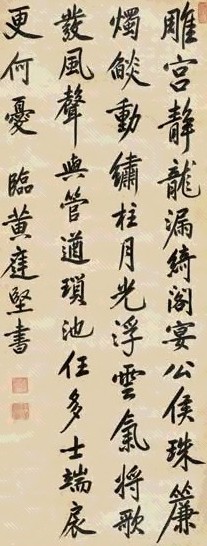 雕宮靜龍漏綺閣宴公侯珠簾
燭燄動繡柱月光浮雲氣將歌
發風聲與管遒瑣池任多士端扆
更何憂 臨黃庭堅書